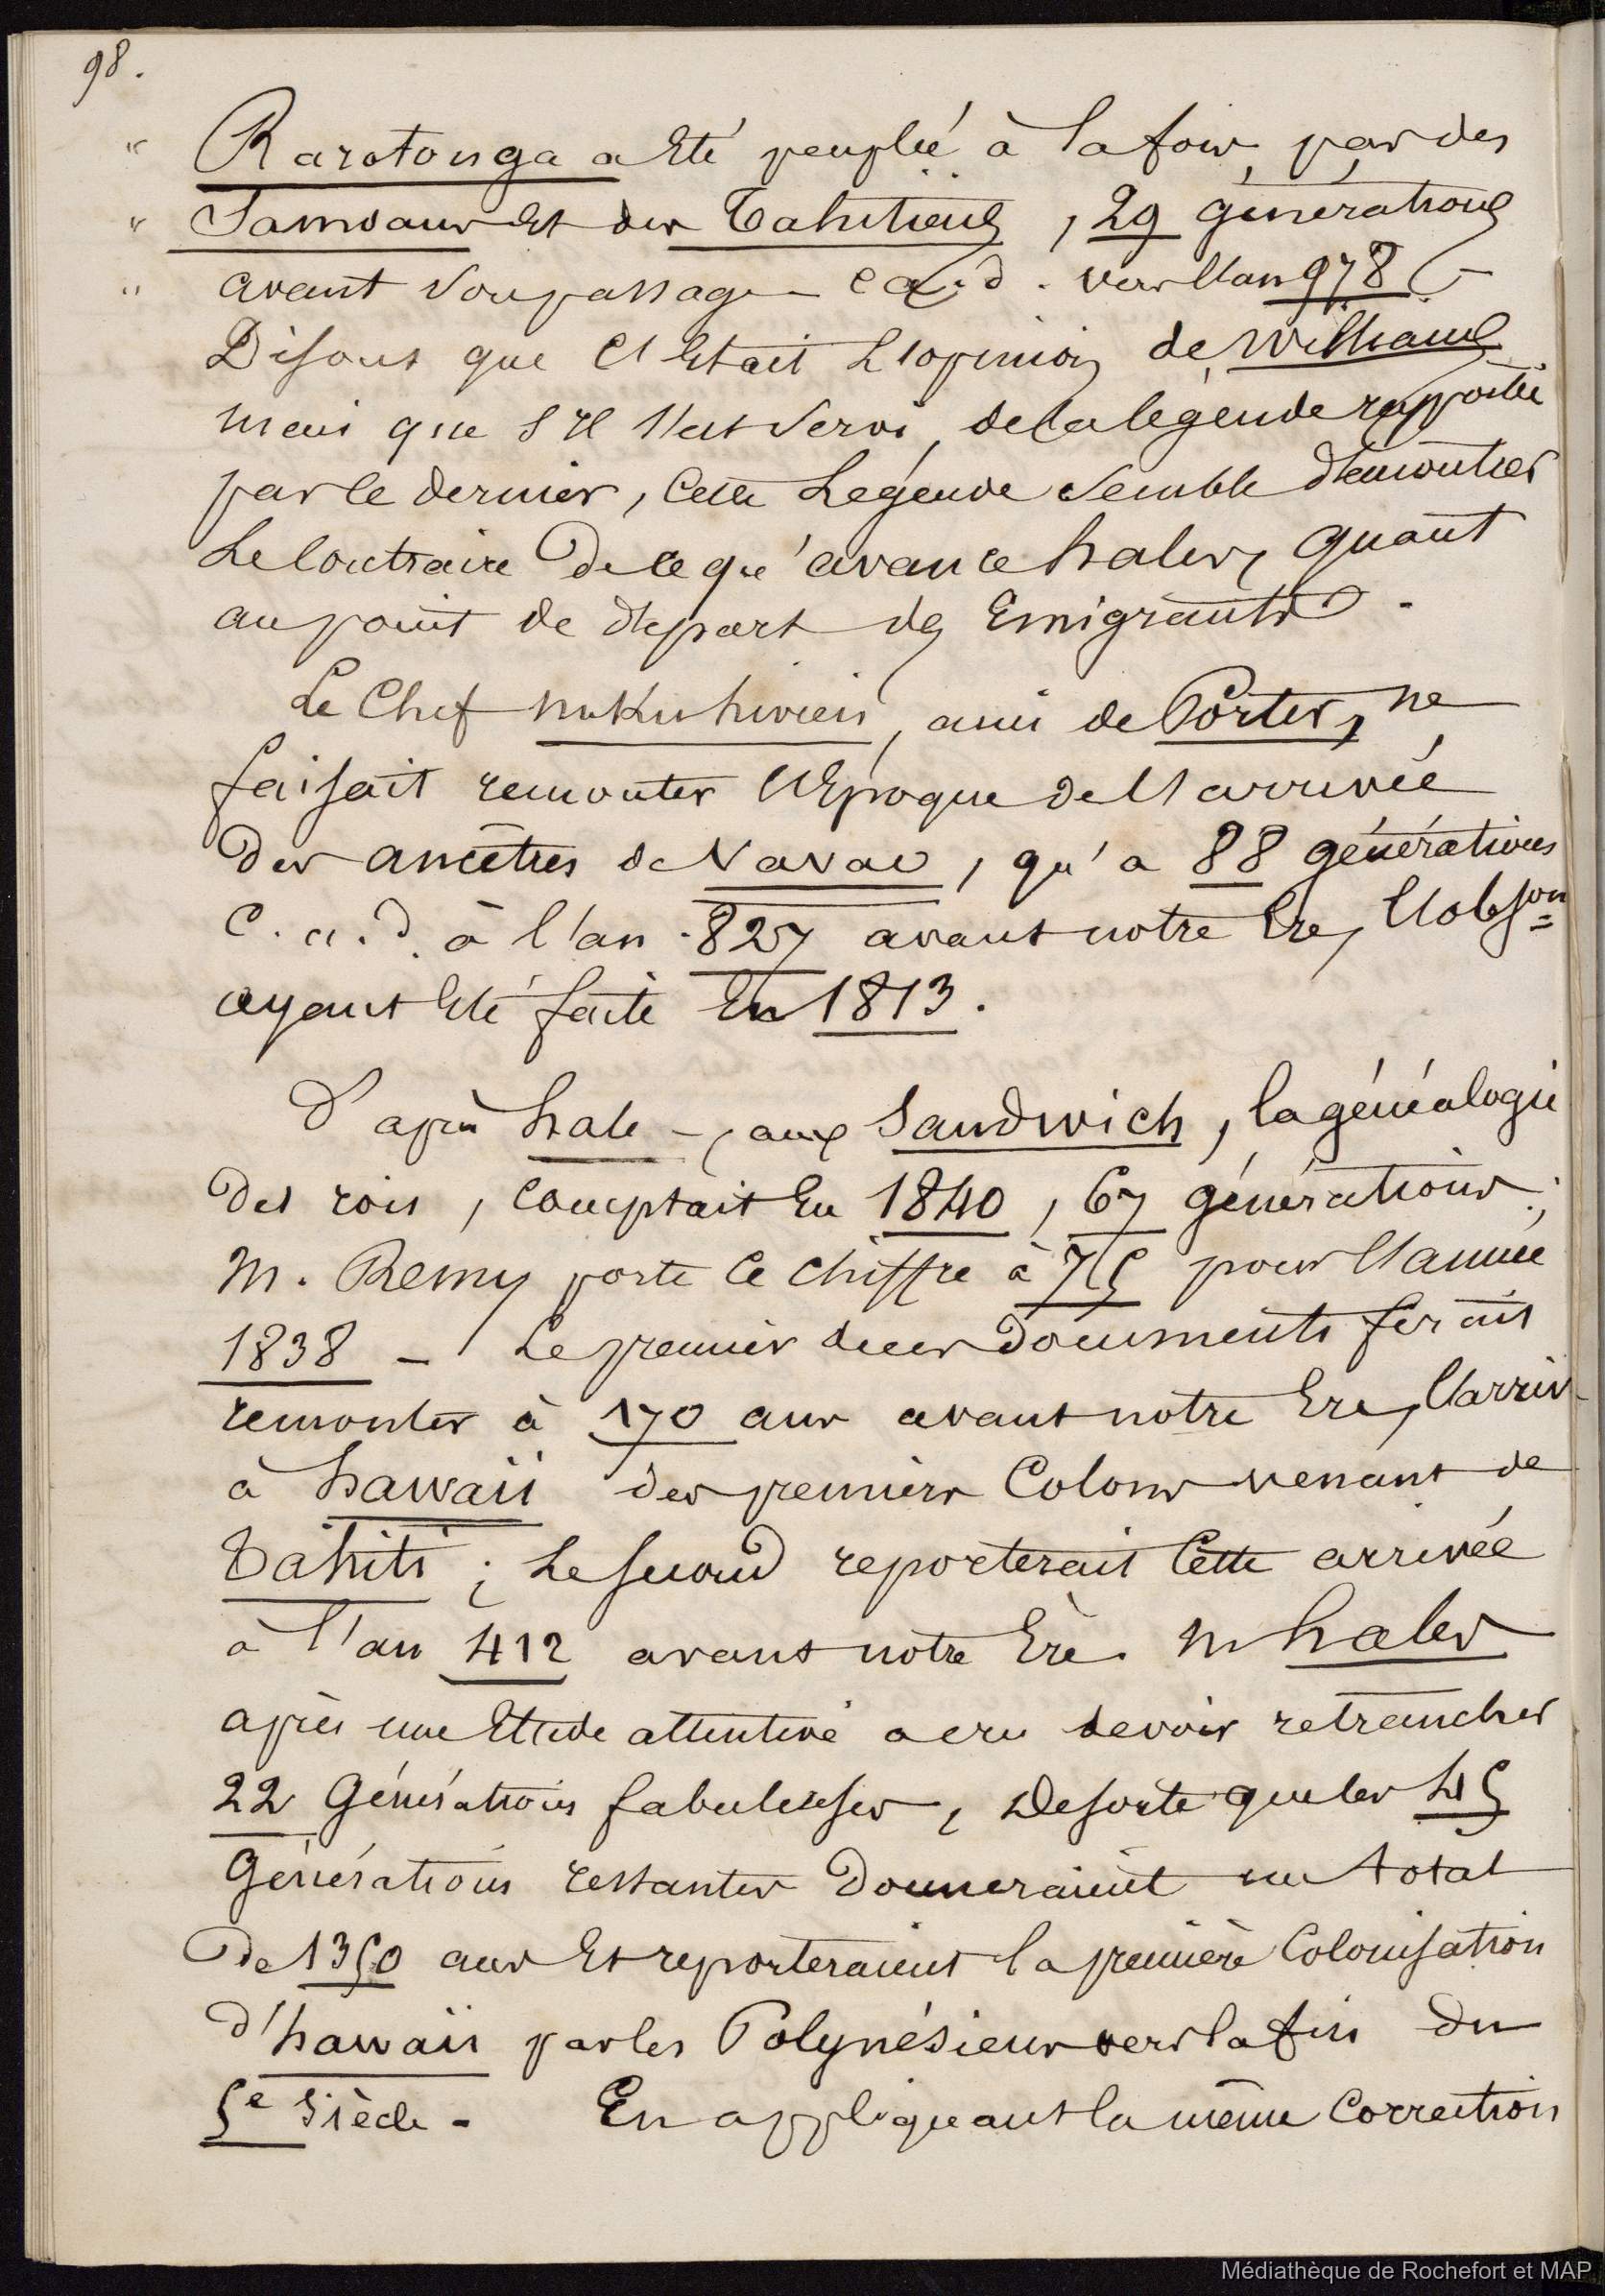 98.
" Rarotonga a été peuplée à la fois, par des
" Samoans et des Tahitiens, 29 générations
" avant son passage — c. a. d. vers l'an 978 (-
Disons que c'était l'opinion de Williams
mais que s'il s'est servi, de la légende rapportée
par le dernier, cette légende semble démontrer
le contraire de ce qu'avance hales, quant
au point de départ des Emigrants.
Le Chef nukuhivien, ami de Porter, ne
faisait remonter l'Epoque de l'arrivée
des ancêtres de Vavao, qu'a 88 générations
c. a. d. à l'an 827 avant notre Ere, l'obson=
ayant été faite en 1813.
D'après hale — aux Sandwich, la généalogie
des rois, comptait en 1840, 67 générations;
M. Remy porte ce chiffre à 75 pour l'année
1838 — Le premier de ces documents ferait
remonter à 170 ans avant notre Ere, l'arriv-
à hawaii des premiers Colons venant de
Tahiti; Le second reporterait cette arrivée
à l'an 412 avant notre Ere. M hales
après une Etude attentive a cru devoir retrancher
22 Générations fabuleuses, de sorte que les 45
Générations restantes donneraient un total
de 1350 ans et reporteraient la première Colonisation
d'hawaii par les Polynésiens vers la fin du
5e siècle — En appliquant la même Correction
Médiathèque de Rochefort et MAP